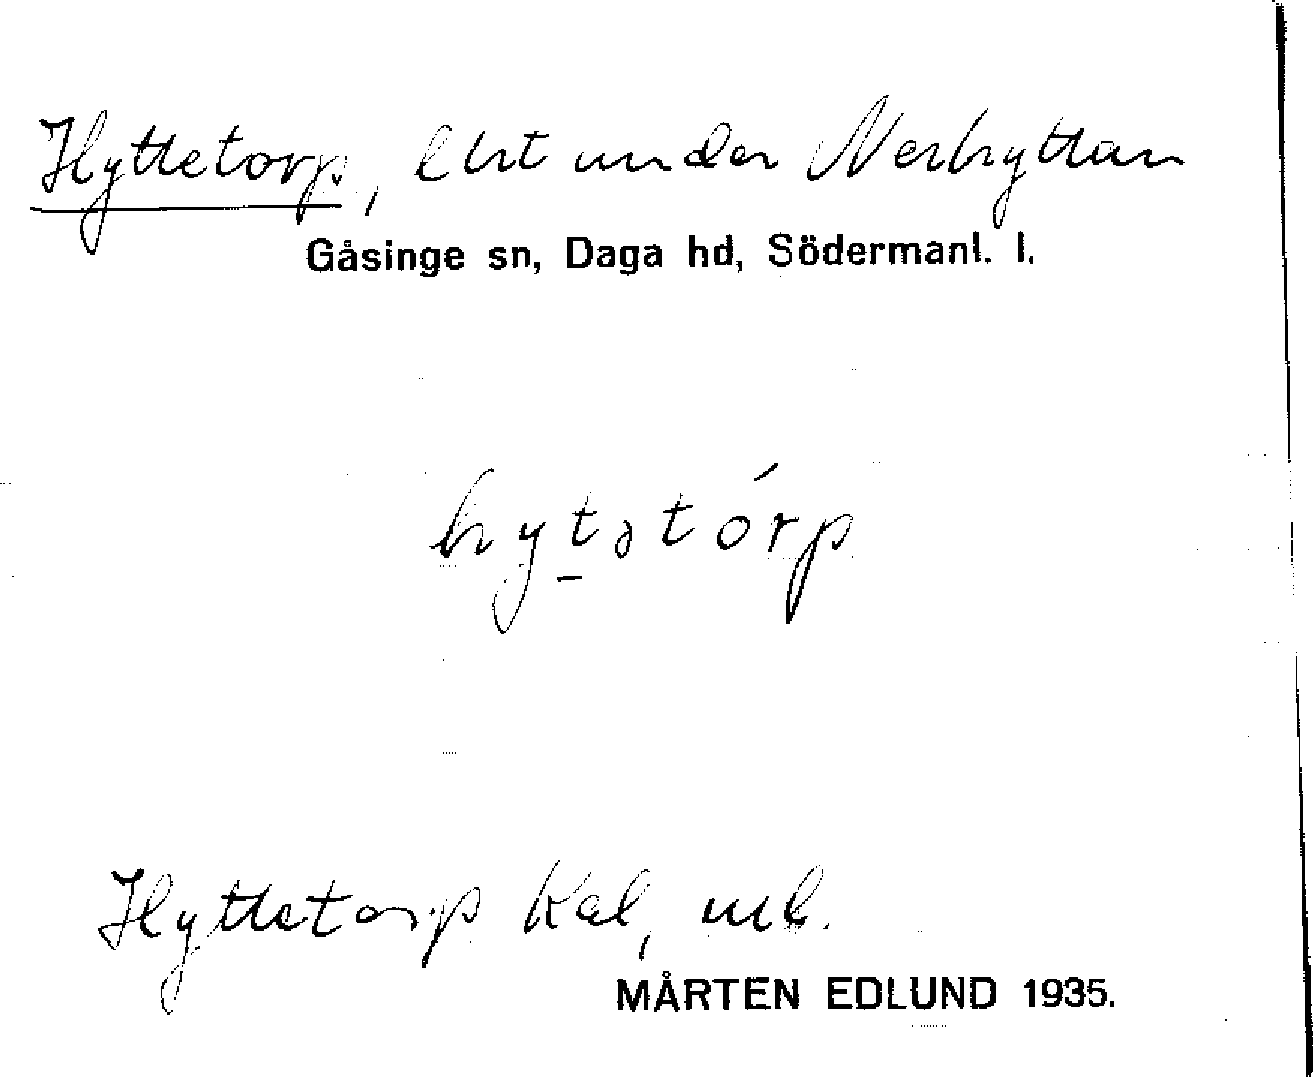 Hyttetorp, lht under Nerhyttan
Gåsinge sn, Daga hd, Södermanl. l.
hytətórp
Hyttetorp Kal, mb.
MÅRTEN EDLUND 1935.